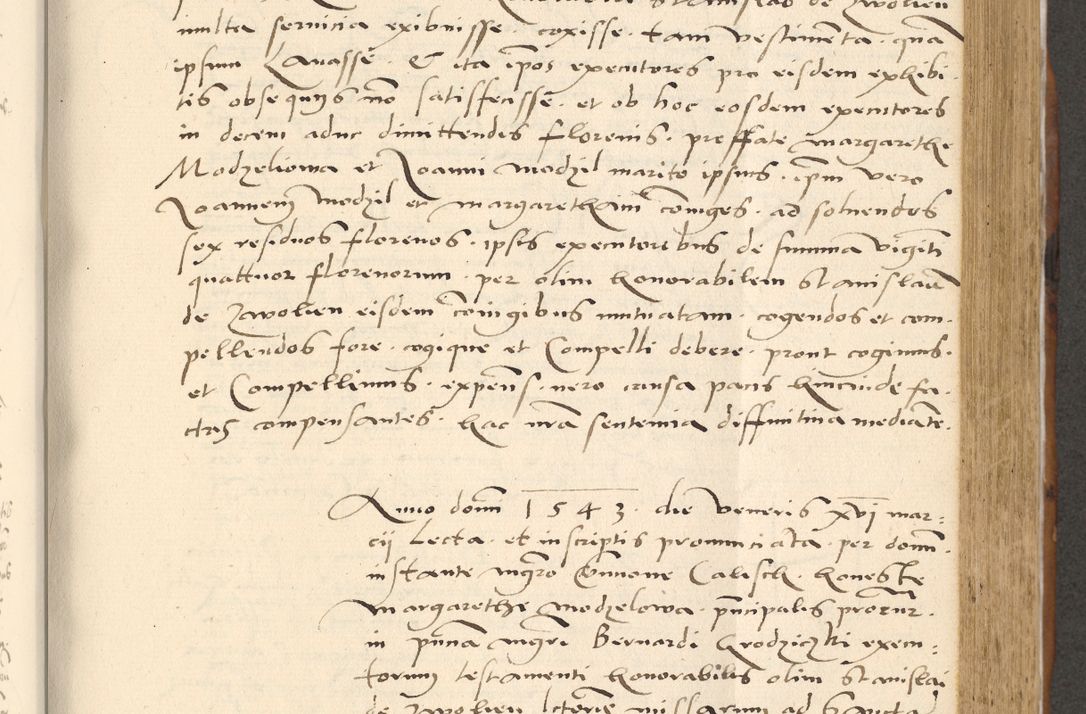 Stanislao de Zwolien
multa servicia exibuisse · coxisse · tam vestimenta · quā
ipsum Lavassē · & ita ip̄os executores pro eisdem exhibi-
tis obsequijs nō satisfecissē · et ob hoc eosdem executores
in decem aduc dimittendis florenis · preffate margarethe
Modzeliowa et Joanni Modzil marito ipsius · ip̄m vero
Joannem Modzil et margaretham cōniges · ad solvendos
sex residuos florenos · ipsis executoribus de summa viginti
quattuor florenorum · per olim honorabilem Stanislaū
de Zwolien eisdem cōnigibus mutuatam · cogendos et com-
pellendos fore · cogique et Compelli debere · prout cogimus ·
et Compellimus · expens̄ · vero causa pacis hincinde fa-
ctas compensantes · hac nrā sentemia diffinitiva mediāte ·
Anno domī 1543 · die veneris xvi mar-
cii Lecta · et in scriptis pronunciata · per domī ·
instante mgrō Simone Calisch · honeste
margarethe modzelowa · prīncipalis procur̄ ·
in prn̄cia mgrī Bernardi Grodziczki execu-
torum testamenti honorabilis olim Stanislai
de Zwolien